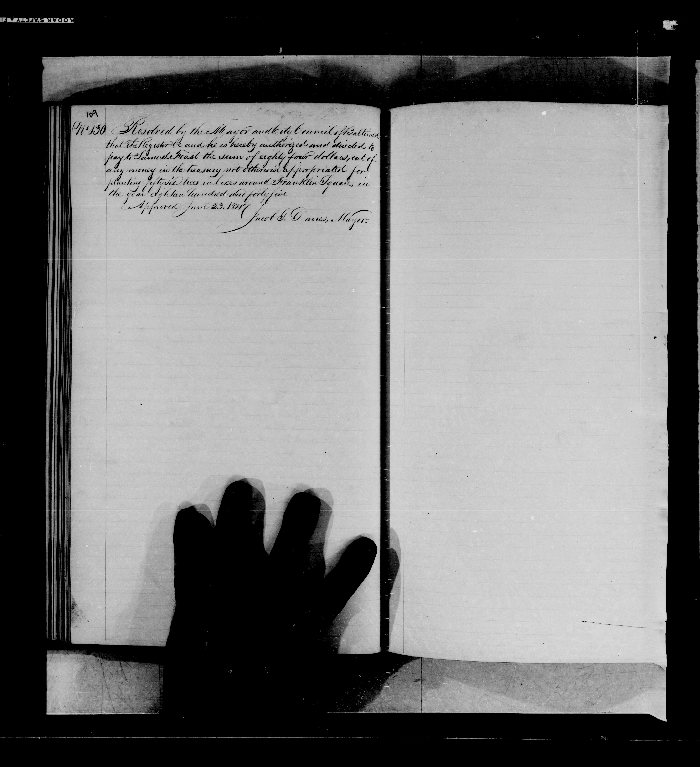 109
No 130 Resolved by the Mayor and City Council of Baltimore
that the Register be and he is hereby authorized and directed to
pay to Samuel Feast the sum of eighty four dollars, out of
any money in the treasury not otherwise appropriated for
planting trees in boxes around Franklin Square, in
the year eighteen hundred and forty five
Approved June 23. 1847
Jacob G. Davies, Mayor.